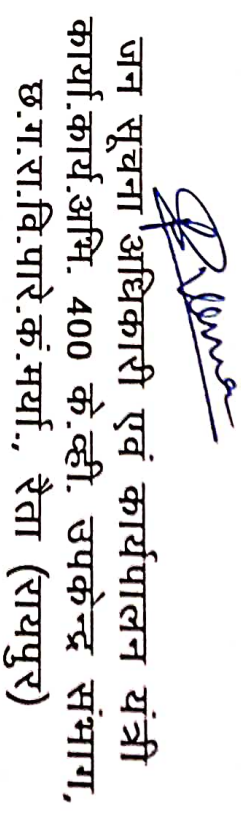 जन सूचना अधिकारी एवं कार्यपालन यंत्री
कार्या.कार्य.अभि. 400 के.व्ही. उपकेन्द्र संभाग,
छ.ग.रा.वि.पारे.कं.मर्या., रैता (रायपुर)